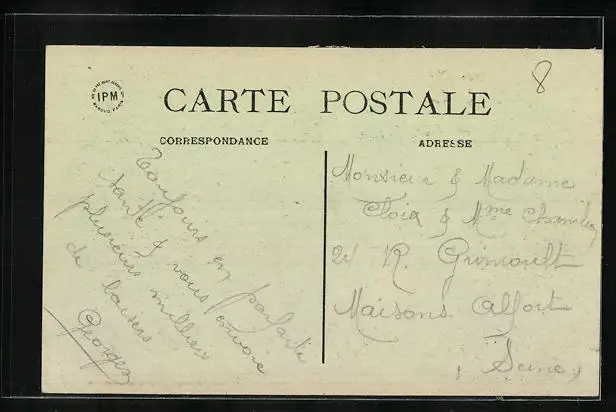 IPM
8
CARTE POSTALE
CORRESPONDANCE
ADRESSE
Toujours en parfaite
santé & vous envoie
plusieurs milliers
de baisers
Georges
Monsieur & Madame
& Mme
24 R. Grimoult
Maisons Alfort
(Seine)